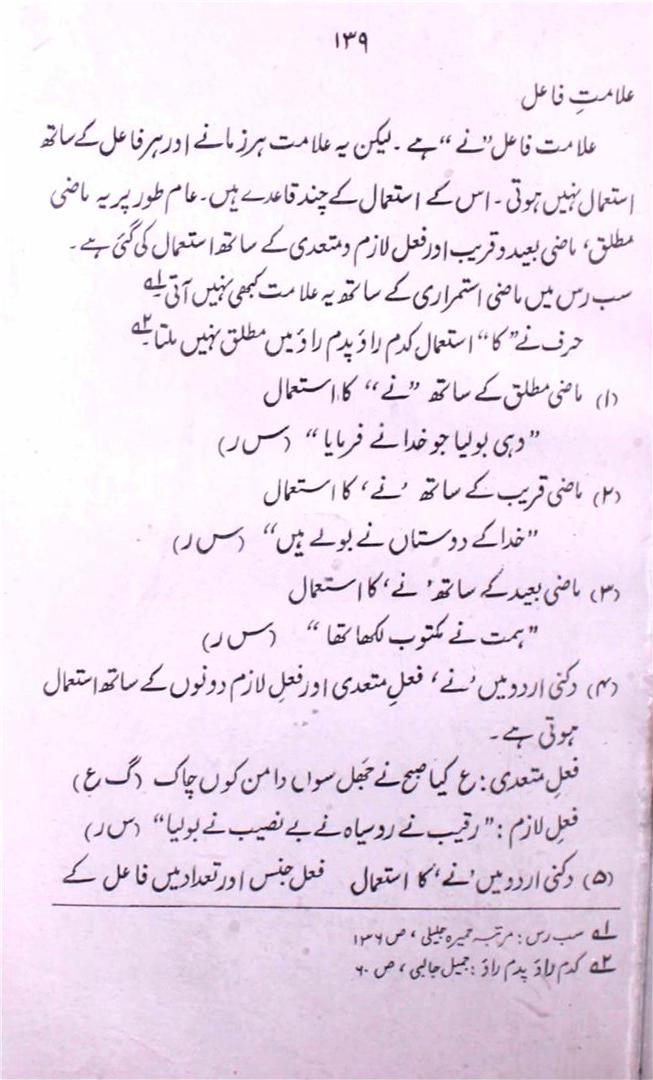 ۱۳۹
علامتِ فاعل
علامت فاعل ”نے“ ہے ۔ لیکن یہ علامت ہر زمانے اور ہر فاعل کے ساتھ
استعمال نہیں ہوتی ۔ اس کے استعمال کے چند قاعدے ہیں ۔ عام طور پر یہ ماضی
مطلق، ماضی بعید و قریب اور فعل لازم و متعدی کے ساتھ استعمال کی گئی ہے ۔
سب رس میں ماضی استمراری کے ساتھ یہ علامت کبھی نہیں آتی ۔ ۱؎
حرف نے ”کا“ استعمال کدم راؤ پدم راؤ میں مطلق نہیں ملتا ۔ ۲؎
(۱) ماضی مطلق کے ساتھ ”نے“ کا استعمال
”وہی بولیا جو خدا نے فرمایا“ (س ر)
(۲) ماضی قریب کے ساتھ ’نے‘ کا استعمال
”خدا کے دوستاں نے بولے ہیں“ (س ر)
(۳) ماضی بعید کے ساتھ ’نے‘ کا استعمال
”ہمت نے مکتوب لکھا تھا“ (س ر)
(۴) دکنی اردو میں ’نے‘ فعلِ متعدی اور فعلِ لازم دونوں کے ساتھ استعمال
ہوتی ہے ۔
فعلِ متعدی : ع کیا صبح نے جھل سوں دامن کوں چاک (گ ع)
فعلِ لازم : ”رقیب نے روسیاہ نے بے نصیب نے بولیا“ (س ر)
(۵) دکنی اردو میں ’نے‘ کا استعمال فعل جنس اور تعداد میں فاعل کے
۱؎ سب رس : مرتبہ حمیرہ جلیلی ، ص ۱۳۶
۲؎ کدم راؤ پدم راؤ : جمیل جالبی ، ص ۶۰